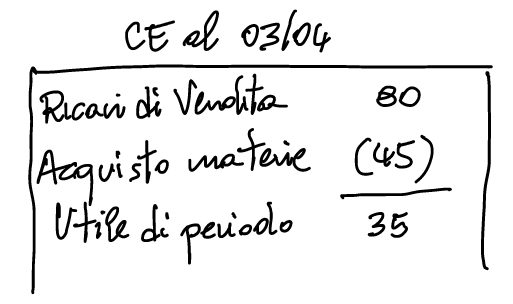 CE al 03/04
Ricavi di Vendita 80
Acquisto materie (45)
Utile di periodo 35